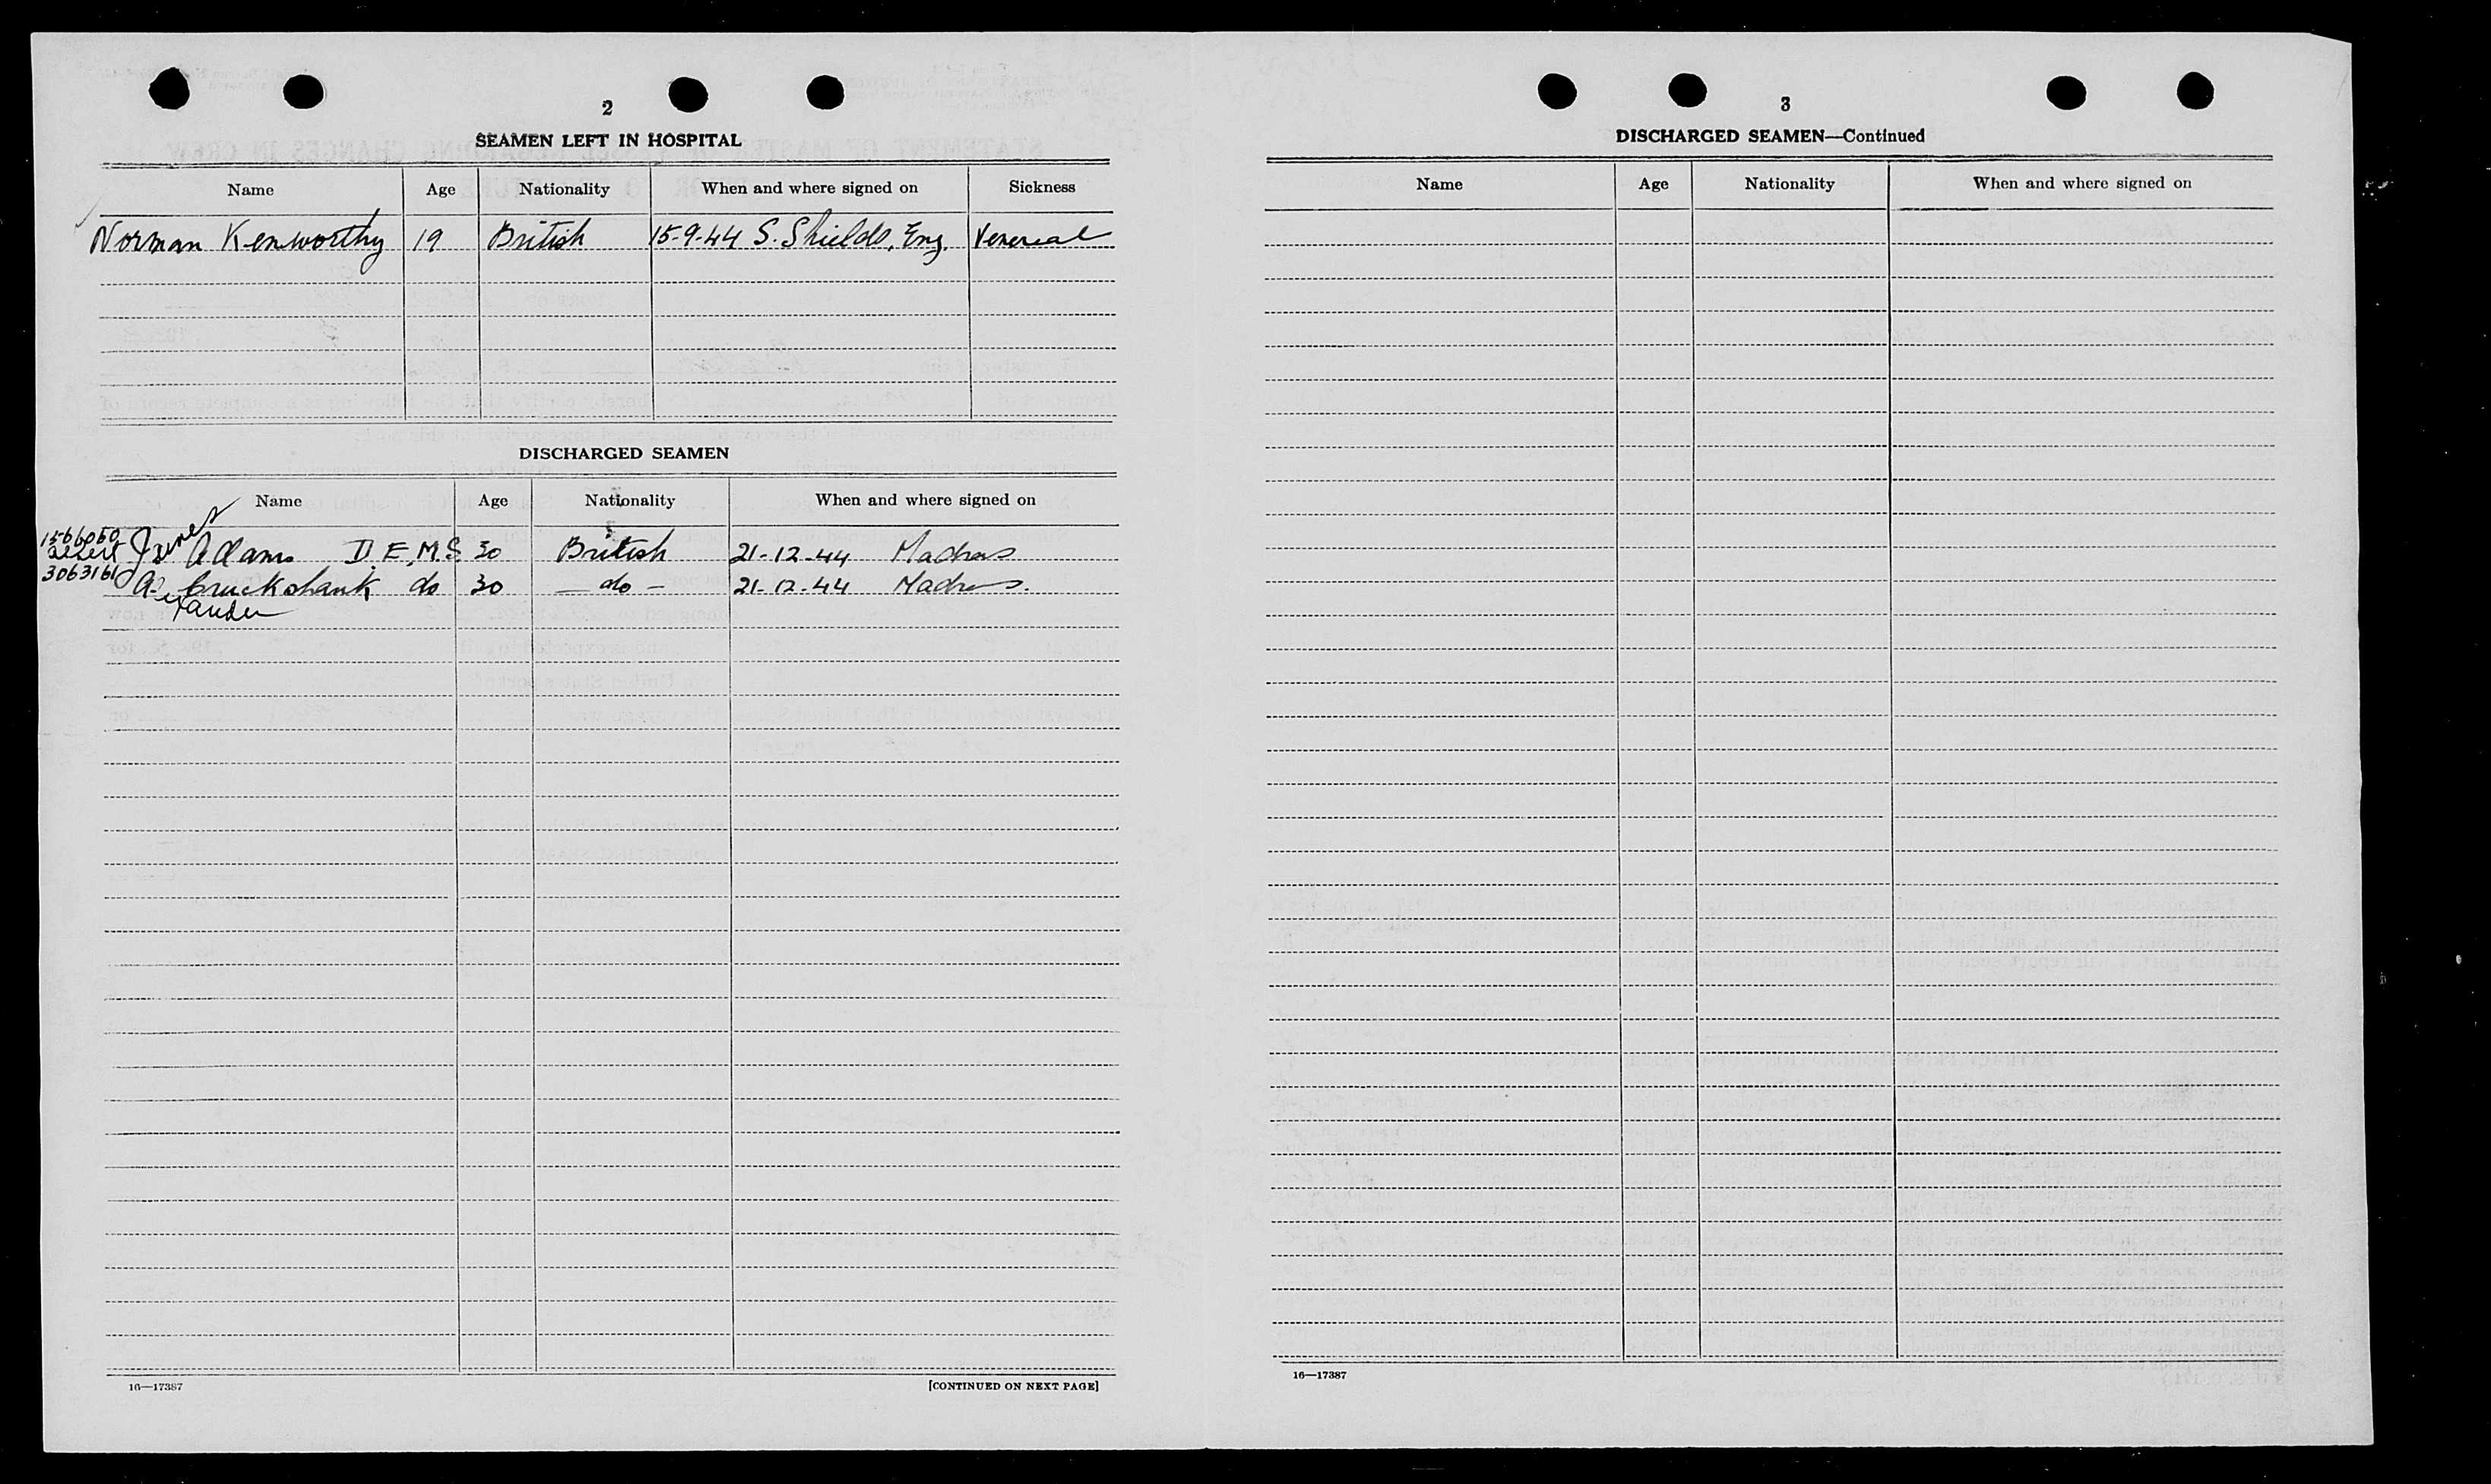 2
SEAMEN LEFT IN HOSPITAL
Name Age Nationality When and where signed on Sickness
Norman Kenworthy 19 British 15-9-44 S. Shields, Eng. Venereal
DISCHARGED SEAMEN
Name Age Nationality When and where signed on
1566050 James Adams D.E.M.S 30 British 21-12-44 Madras
3063161 A. Cruckshank do 30 — do — 21-12-44 Madras.
16—17387
[CONTINUED ON NEXT PAGE]
3
DISCHARGED SEAMEN—Continued
Name Age Nationality When and where signed on
16—17387